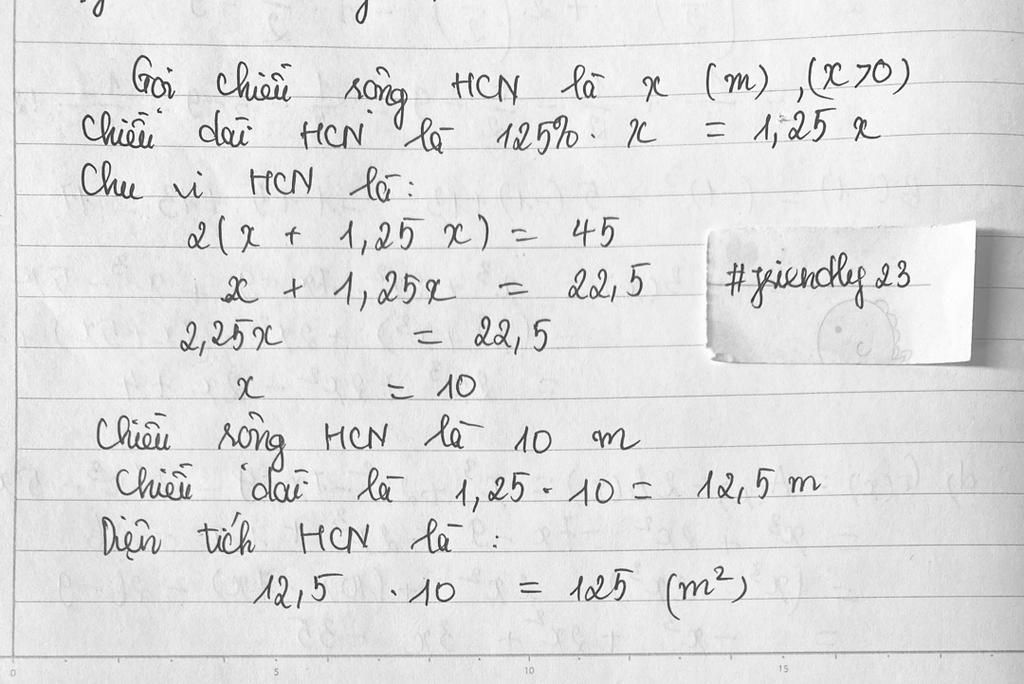 Gọi chiều rộng HCN là x (m), (x>0)
Chiều dài HCN là 125% . x = 1,25 x
Chu vi HCN là:
2(x + 1,25 x) = 45
x + 1,25x = 22,5
2,25x = 22,5
x = 10
Chiều rộng HCN là 10 m
Chiều dài là 1,25 . 10 = 12,5 m
Diện tích HCN là :
12,5 . 10 = 125 (m²)
#friendly23
0 5 10 15